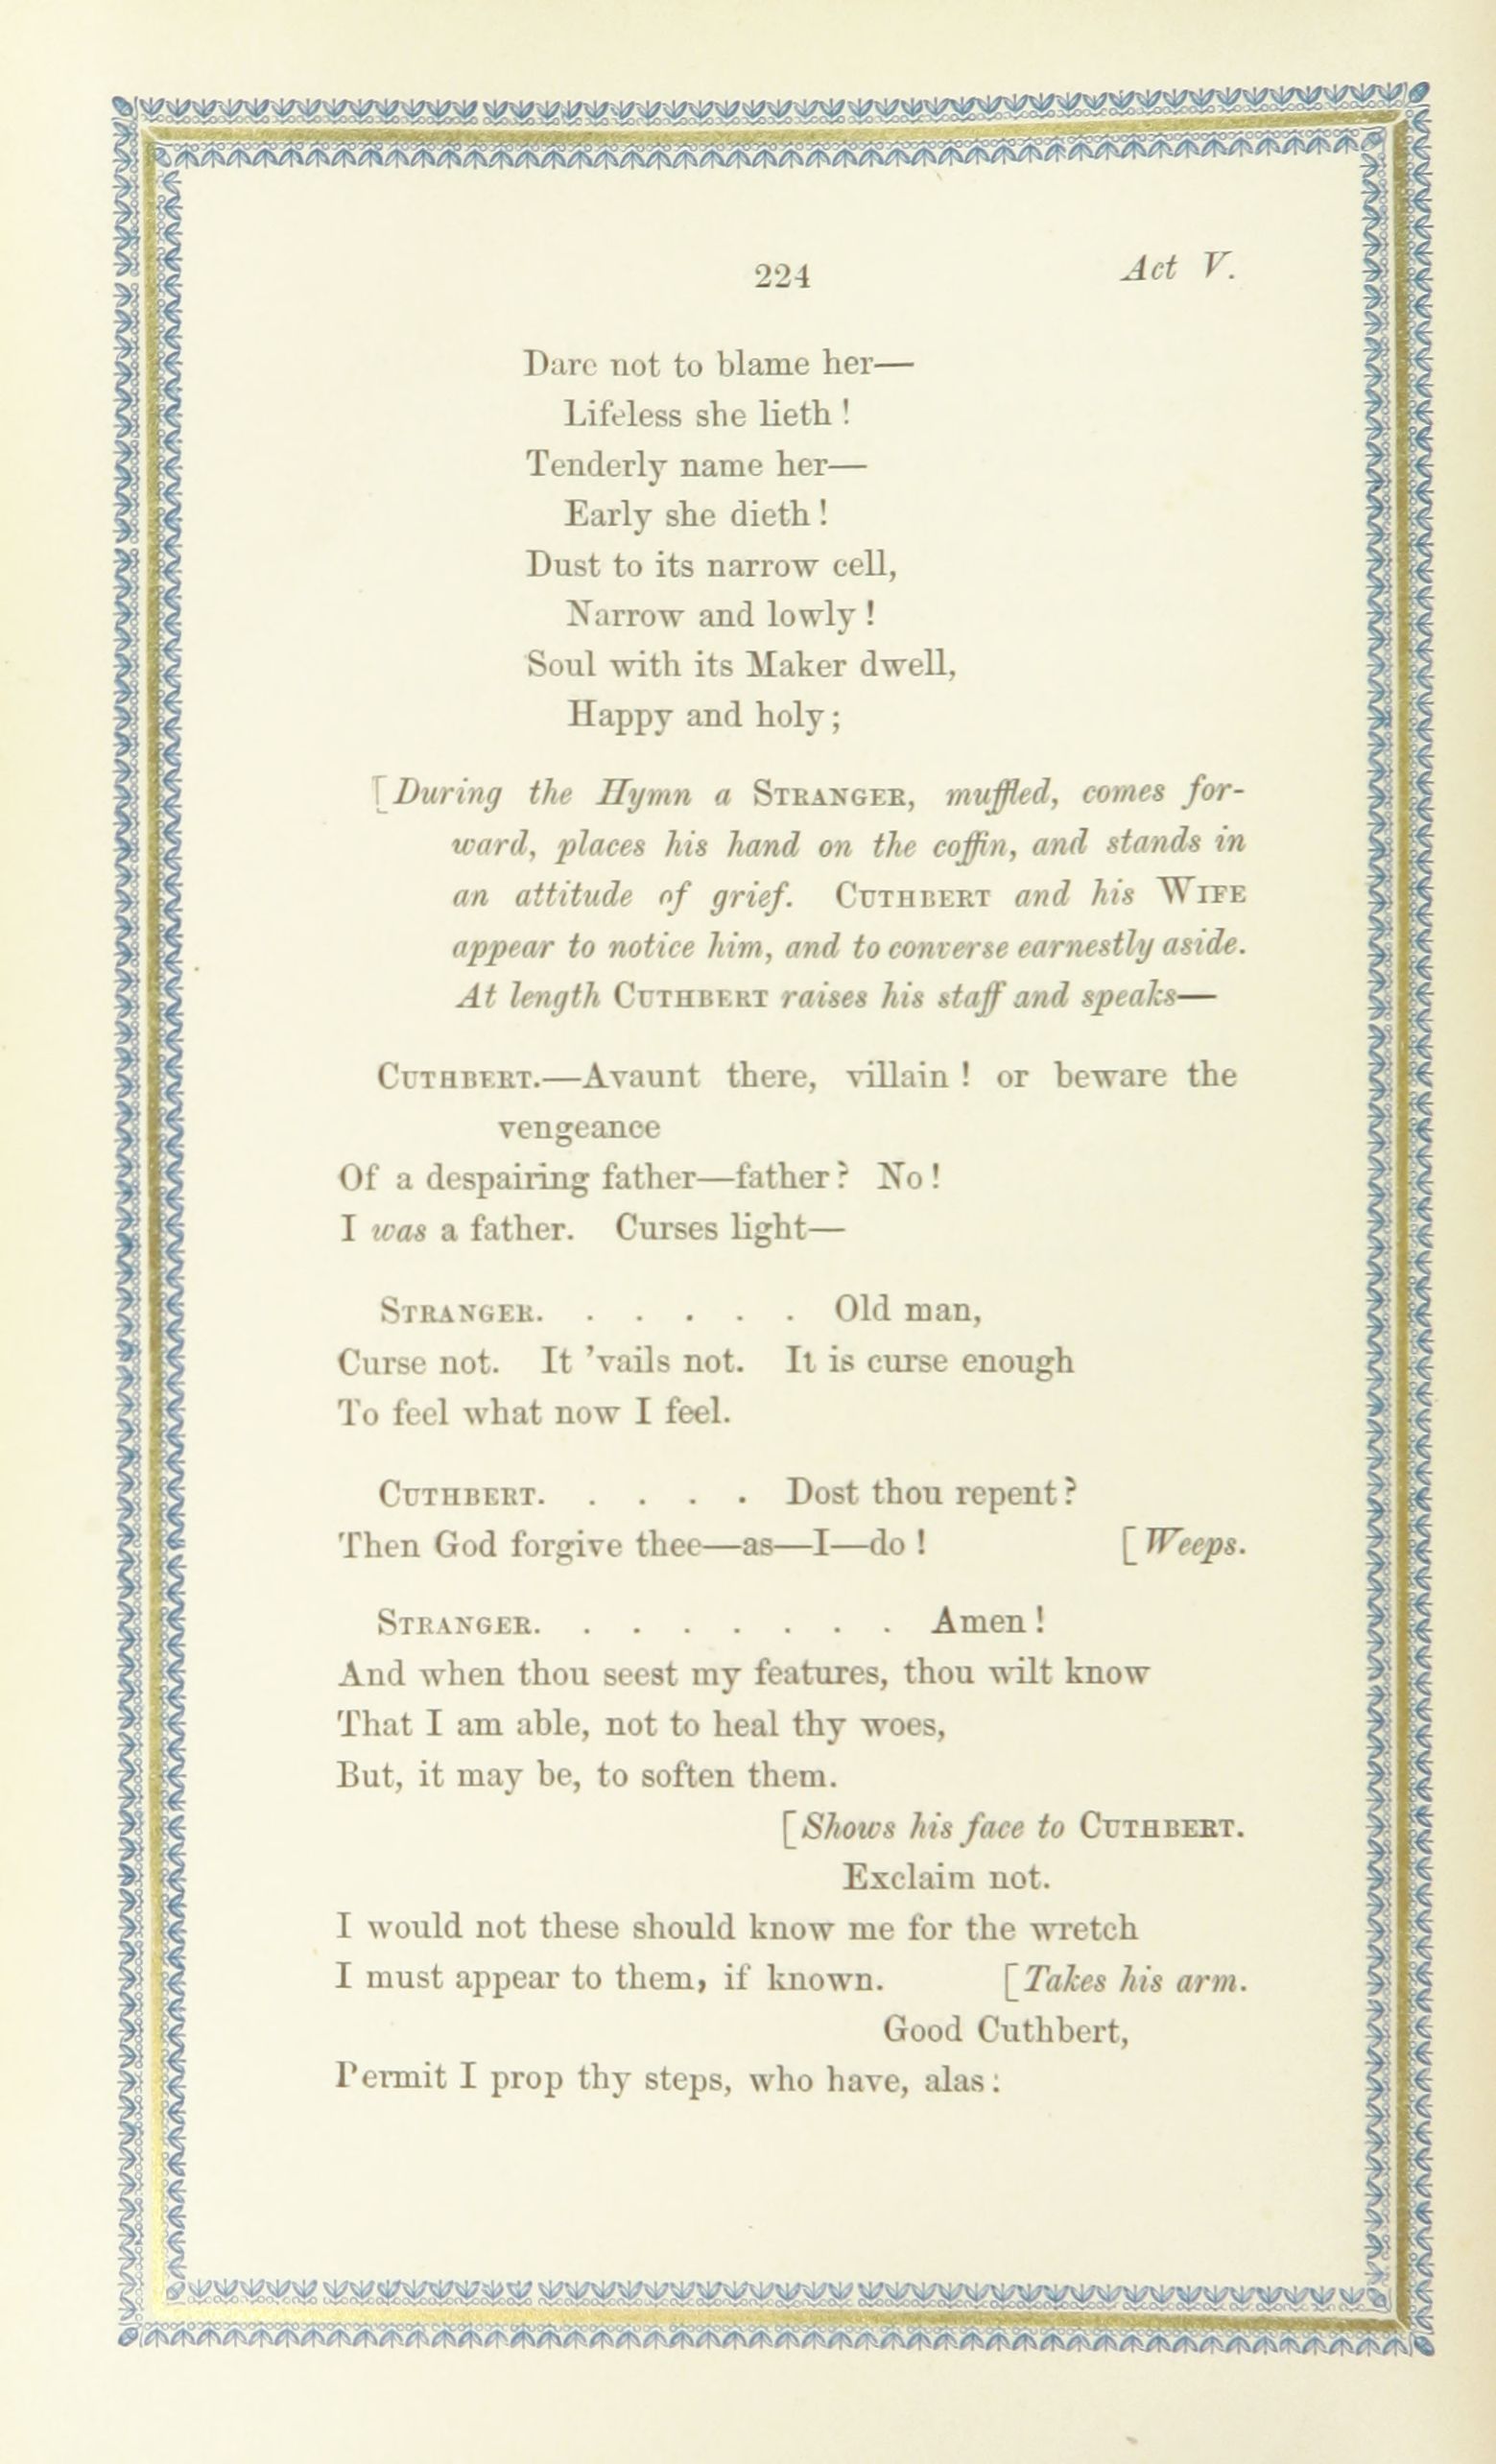 224 Act V.
Dare not to blame her—
Lifeless she lieth!
Tenderly name her—
Early she dieth!
Dust to its narrow cell,
Narrow and lowly!
Soul with its Maker dwell,
Happy and holy;
[During the Hymn a STRANGER, muffled, comes for-
ward, places his hand on the coffin, and stands in
an attitude of grief. CUTHBERT and his WIFE
appear to notice him, and to converse earnestly aside.
At length CUTHBERT raises his staff and speaks—
CUTHBERT.—Avaunt there, villain! or beware the
vengeance
Of a despairing father—father? No!
I was a father. Curses light—
STRANGER. . . . . . Old man,
Curse not. It 'vails not. It is curse enough
To feel what now I feel.
CUTHBERT. . . . . Dost thou repent?
Then God forgive thee—as—I—do! [Weeps.
STRANGER. . . . . . . . Amen!
And when thou seest my features, thou wilt know
That I am able, not to heal thy woes,
But, it may be, to soften them.
[Shows his face to CUTHBERT.
Exclaim not.
I would not these should know me for the wretch
I must appear to them, if known. [Takes his arm.
Good Cuthbert,
Permit I prop thy steps, who have, alas: